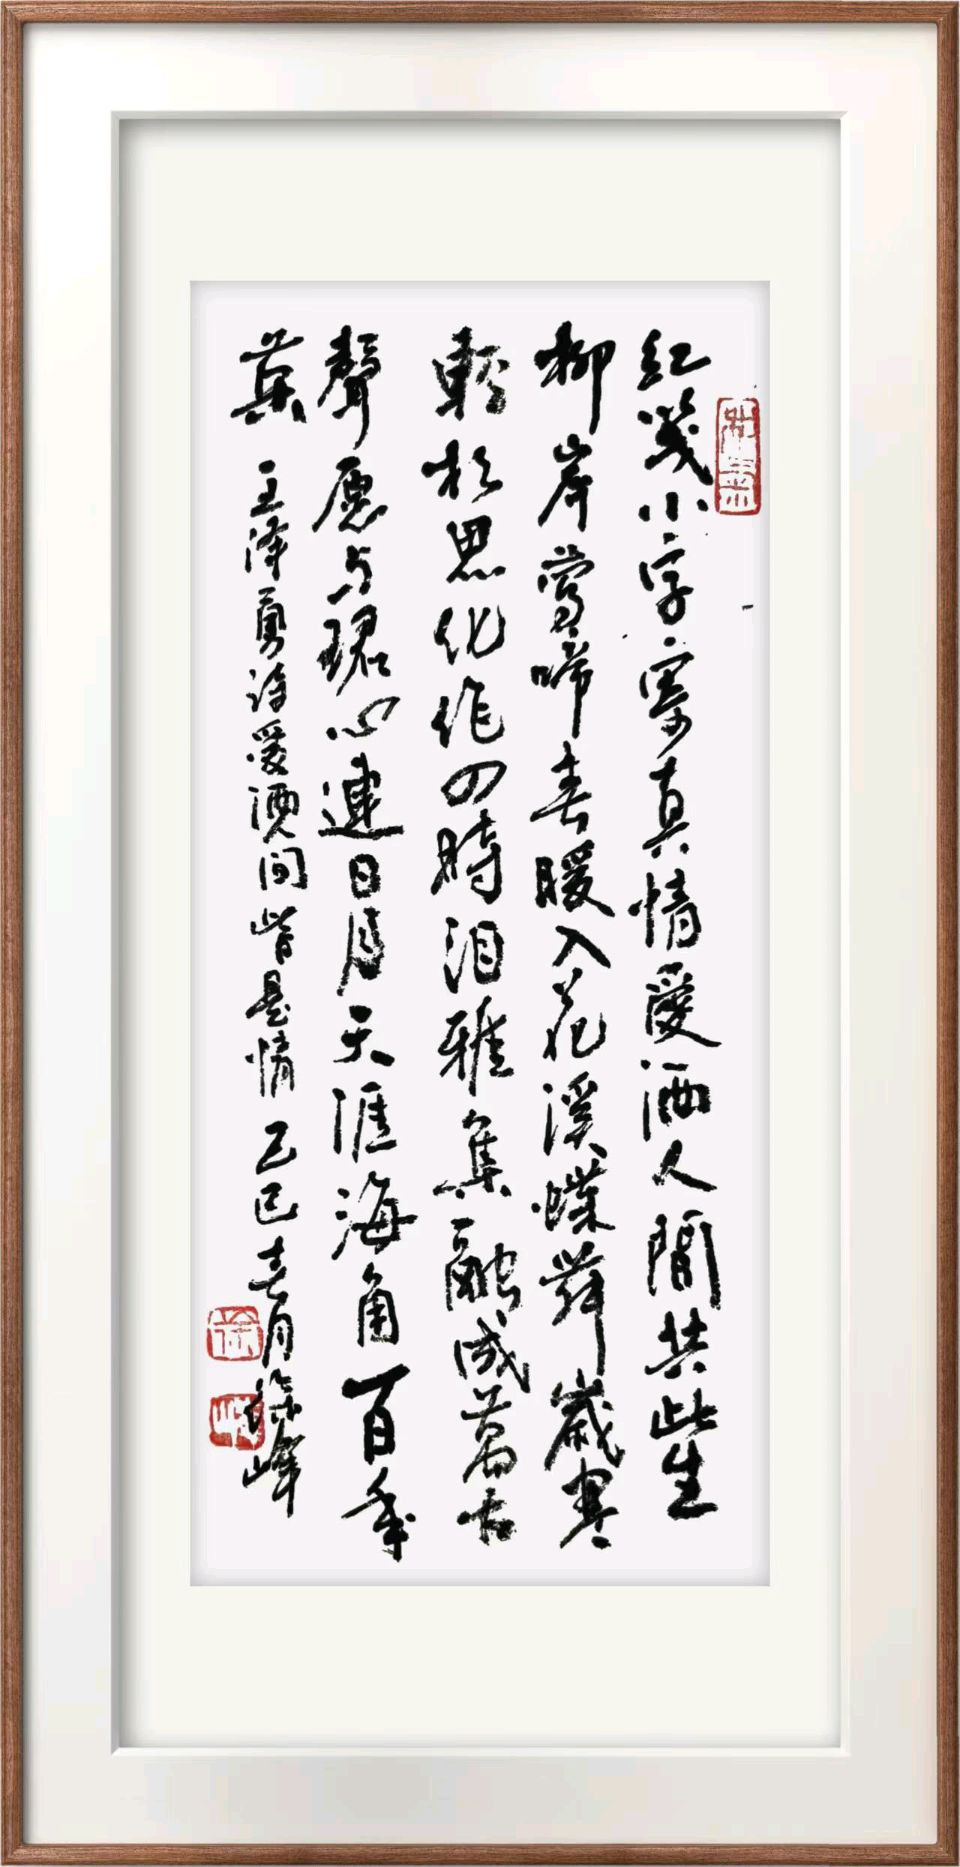 紅箋小字寄真情愛洒人間共此生
柳岸鶯啼春暖入花溪蝶舞歲寒
輕相思化作四時泪雅集融成萬古
聲愿与珺心連日月天涯海角百年
葉 王泽勇诗愛洒人间皆是情 乙巳春月徐峰